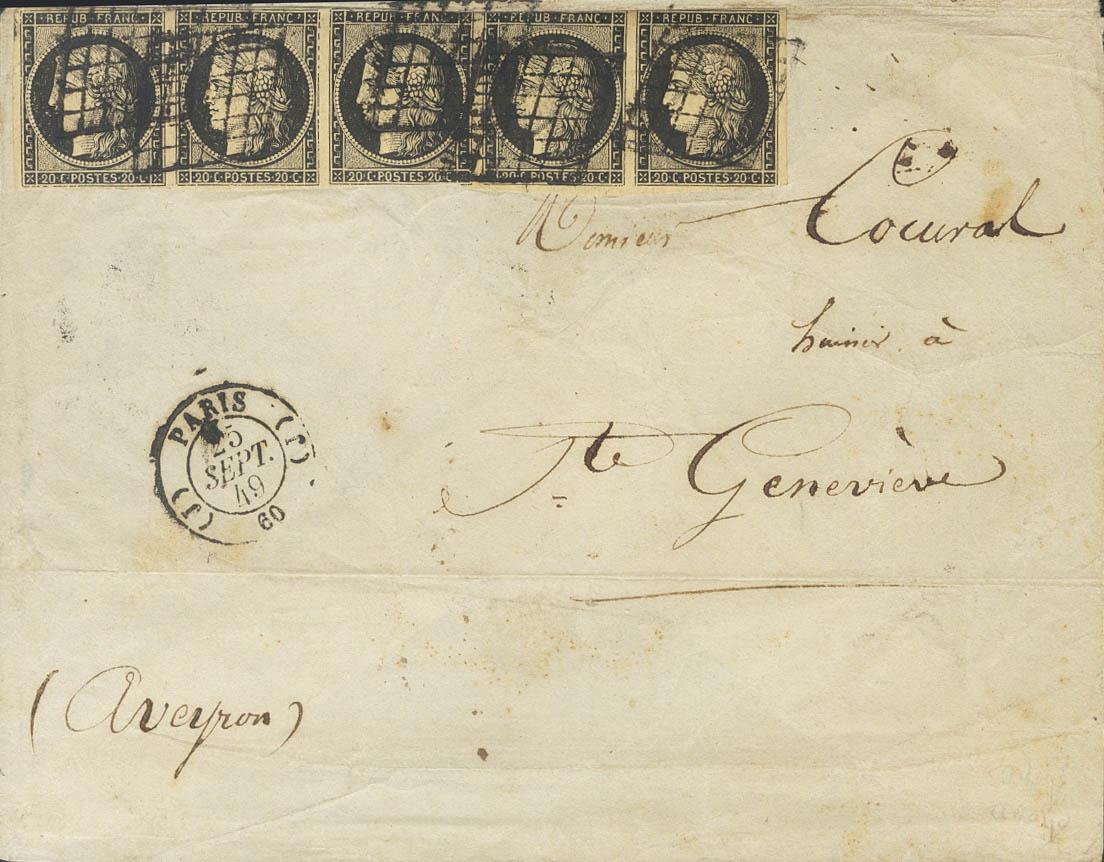 REPUB FRANC REPUB FRANC REPUB FRANC REPUB FRANC REPUB FRANC
20 C POSTES 20 C 20 C POSTES 20 C 20 C POSTES 20 C 20 C POSTES 20 C 20 C POSTES 20 C
Monsieur Cocural
huissier à
Ste Geneviève
PARIS
25
SEPT.
49
(J)
60
(Aveyron)